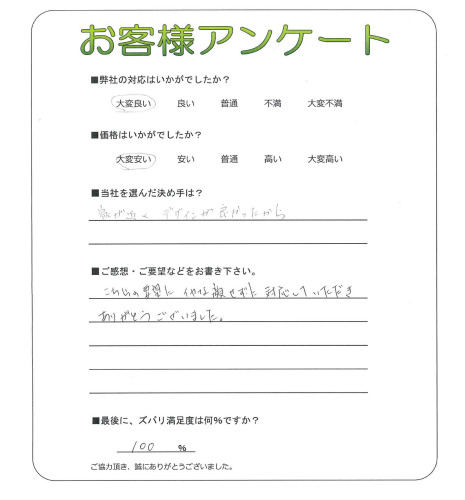 お客様アンケート
■弊社の対応はいかがでしたか？
大変良い 良い 普通 不満 大変不満
■価格はいかがでしたか？
大変安い 安い 普通 高い 大変高い
■当社を選んだ決め手は？
家が近く デザインが良かったから
■ご感想・ご要望などをお書き下さい。
こちらの要望に イヤな顔せずに 対応していただき
ありがとうございました。
■最後に、ズバリ満足度は何%ですか？
100 %
ご協力頂き、誠にありがとうございました。